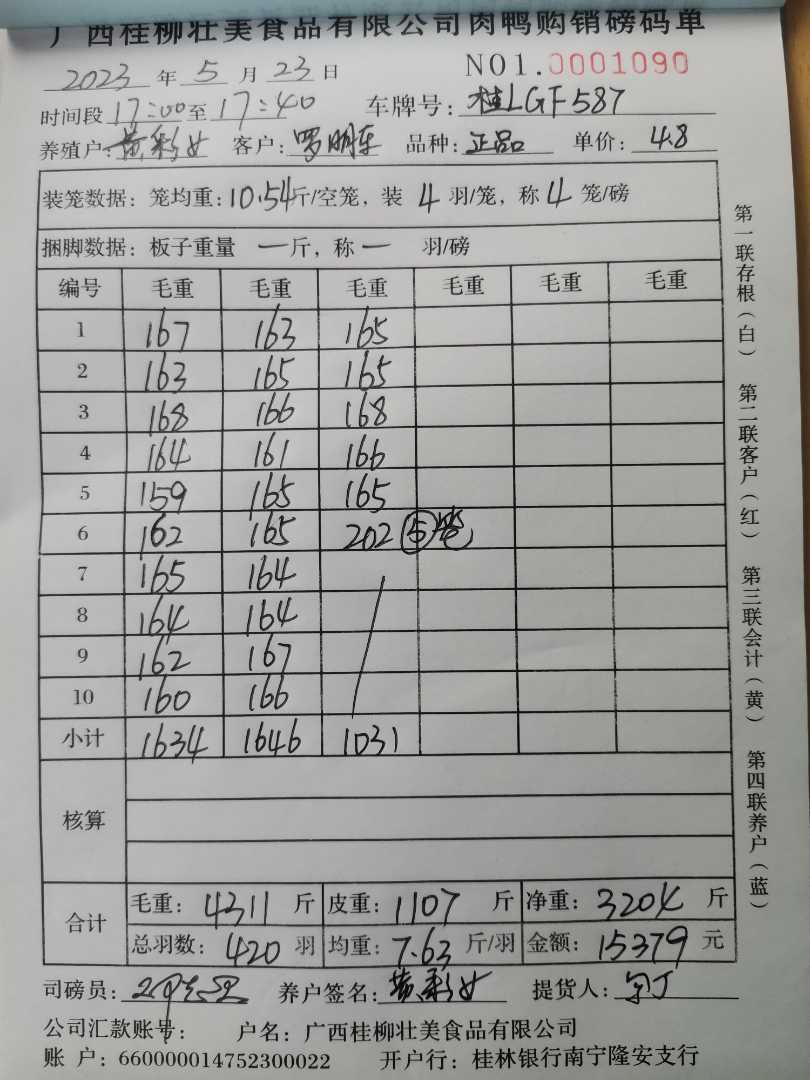 广西桂柳壮美食品有限公司肉鸭购销磅码单
2023 年 5 月 23 日 NO1.0001090
时间段 17:00 至 17:40 车牌号: 桂LGF587
养殖户: 黄彩女 客户: 罗明车 品种: 正品 单价: 4.8
装笼数据: 笼均重: 10.54 斤/空笼, 装 4 羽/笼, 称 4 笼/磅
捆脚数据: 板子重量 一 斤, 称 一 羽/磅
编号 毛重 毛重 毛重 毛重 毛重 毛重
1 167 163 165
2 163 165 165
3 168 166 168
4 164 161 166
5 159 165 165
6 162 165 202 ⑤笼
7 165 164
8 164 164
9 162 167
10 160 166
小计 1634 1646 1031
核算
合计 毛重: 4311 斤 皮重: 1107 斤 净重: 3204 斤
总羽数: 420 羽 均重: 7.63 斤/羽 金额: 15379 元
司磅员: 养户签名: 黄彩女 提货人:
公司汇款账号: 户名: 广西桂柳壮美食品有限公司
账 户: 660000014752300022 开户行: 桂林银行南宁隆安支行
第一联存根(白) 第二联客户(红) 第三联会计(黄) 第四联养户(蓝)